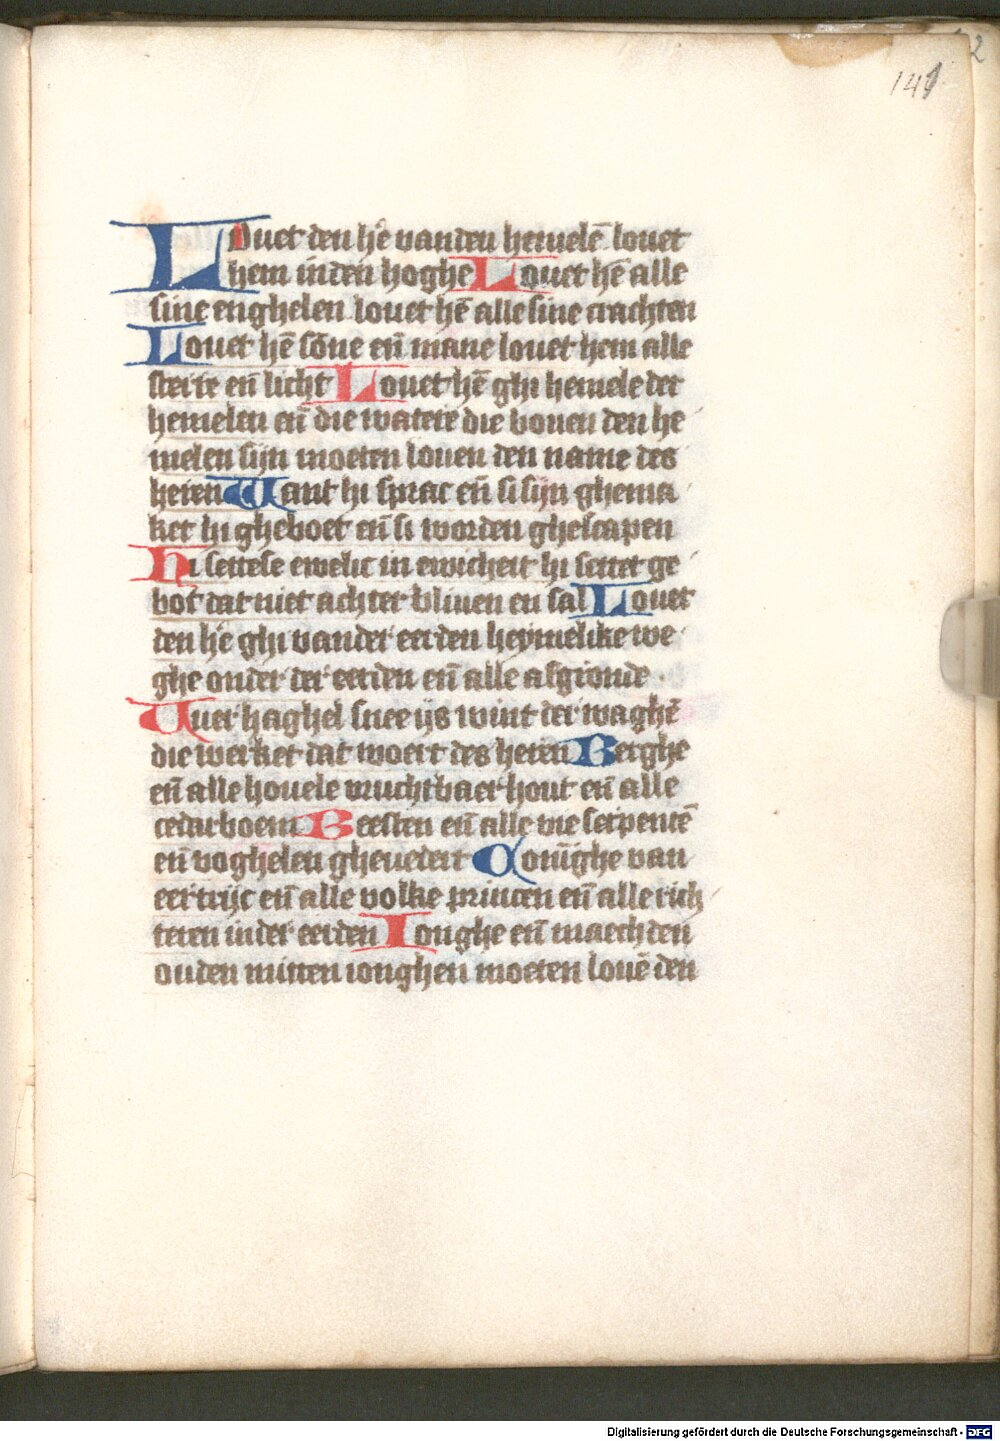 141
2
LOuet den hē vanden hemelē louet
hem inden hoghe Louet hē alle
sine enghelen louet hē alle sine crachten
Louet hē sōne eñ mane louet hem alle
sterre eñ licht Louet hē ghi hemele der
hemelen eñ die watere die bouen den he
melen sijn moeten louen den name des
heren Want hi sprac eñ si sijn ghema
ket hi gheboet eñ si worden ghescapen
Hi settese ewelic in ewicheit hi settet ge
bot dat niet achter bliuen en sal Louet
den hē ghi vander eerden heymelike we
ghe onder der eerden eñ alle afgronde
Vuer haghel snee ijs wint der waghē
die werket dat woert des heren Berghe
eñ alle houele vruchtbaer hout eñ alle
cederboem Beesten eñ alle vie serpentē
eñ voghelen gheuedert Conīghe van
eertrijc eñ alle volke princen eñ alle rich
teren inder eerden Ionghe eñ maechden
ouden mitten ionghen moeten louē den
Digitalisierung gefördert durch die Deutsche Forschungsgemeinschaft - DFG